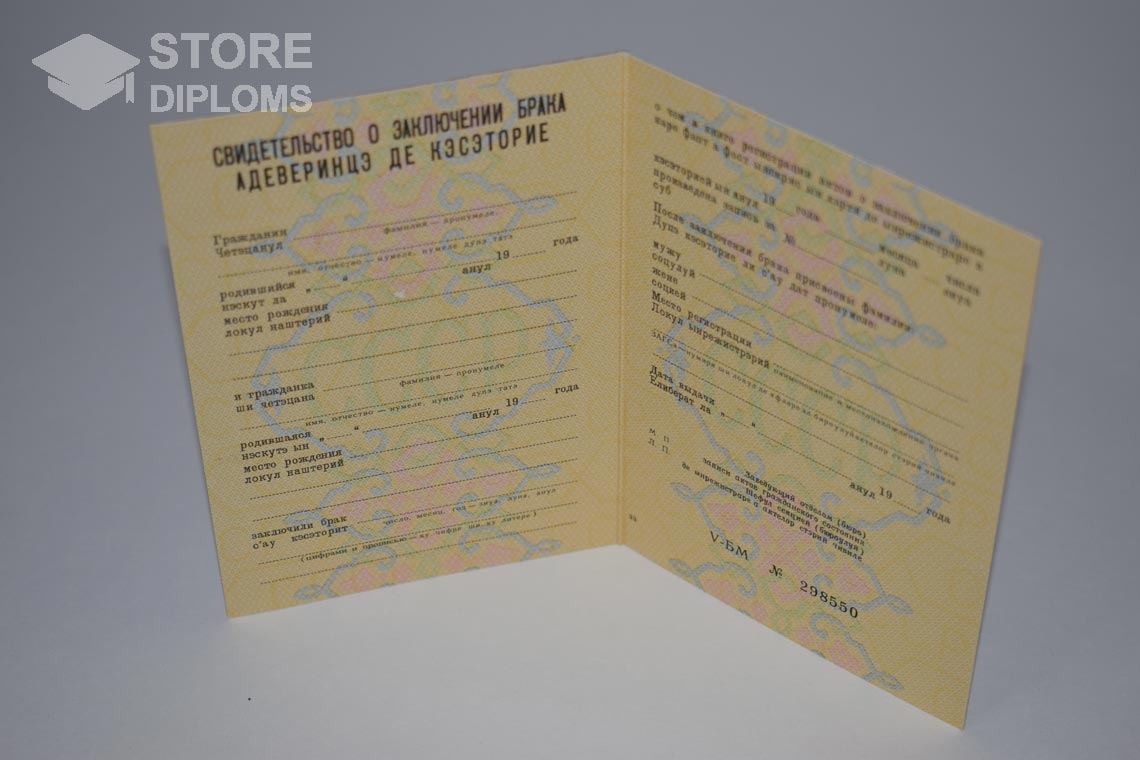 STORE
DIPLOMS
СВИДЕТЕЛЬСТВО О ЗАКЛЮЧЕНИИ БРАКА
АДЕВЕРИНЦЭ ДЕ КЭСЭТОРИЕ
Гражданин
Четэцанул
Фамилия — пронумеле.
имя, отчество — нумеле, нумеле дупэ татэ
родившийся „ “ анул 19 года
нэскут ла
место рождения
локул наштерий
и гражданка
ши четэцана
фамилия — пронумеле
имя, отчество — нумеле, нумеле дупэ татэ
родившаяся „ “ анул 19 года
нэскутэ ын
место рождения
локул наштерий
заключили брак
с'ау кэсэторит
число, месяц, год — зиуа, луна, анул
(цифрами и прописью — ку чифре ши ку литере)
о чем в книге регистрации актов о заключении брака
каре фапт а фост ынскрис ын картя де ынрежистраре а
кэсэторией ын анул 19 года месяца числа
луна зиуа
произведена запись за №
суб
После заключения брака присвоены фамилии
Дупэ кэсэторие ли с'ау дат пронумеле:
мужу
соцулуй
жене
социей
Место регистрации
Локул ынрежистрэрий
наименование и местонахождение органа
ЗАГСа — нумиря ши локул де афларе ал бироулуй актелор стэрий чивиле
Дата выдачи „ “ анул 19 года
Елиберат ла
М П
Л П
Заведующий отделом (бюро)
записи актов гражданского состояния
Шефул секцией (бироулуй)
де ынрежистраре а актелор стэрий чивиле
V-БМ № 298550